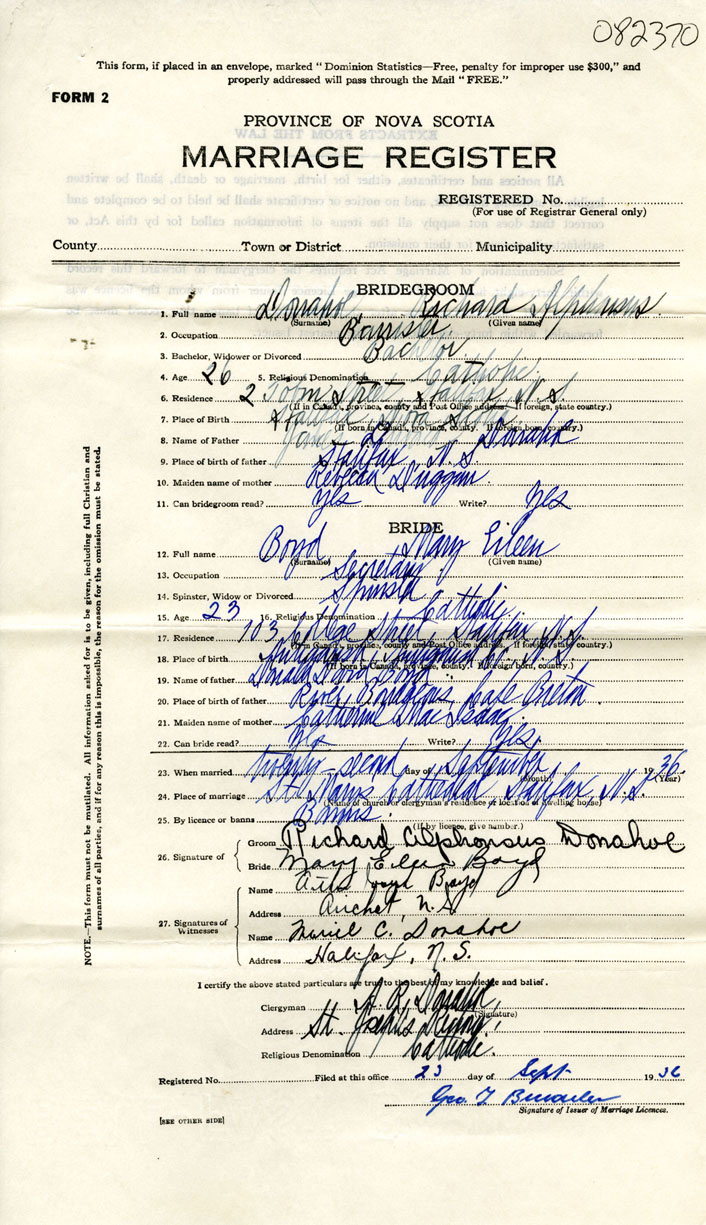 082370
This form, if placed in an envelope, marked "Dominion Statistics—Free, penalty for improper use $300," and
properly addressed will pass through the Mail "FREE."
FORM 2
PROVINCE OF NOVA SCOTIA
MARRIAGE REGISTER
REGISTERED No.
(For use of Registrar General only)
County Town or District Municipality
BRIDEGROOM
1. Full name Donahoe Richard Alphonsus
(Surname) (Given name)
2. Occupation Barrister
3. Bachelor, Widower or Divorced Bachelor
4. Age 26 5. Religious Denomination Catholic
6. Residence 2 Tobin Street Halifax N.S.
(If in Canada, province, county and Post Office address. If foreign, state country.)
7. Place of Birth Halifax Nova Scotia
(If born in Canada, province, county. If foreign born, country.)
8. Name of Father Donahoe
9. Place of birth of father Halifax N.S.
10. Maiden name of mother Rebecca Duggan
11. Can bridegroom read? Yes Write? Yes
BRIDE
12. Full name Boyd Mary Eileen
(Surname) (Given name)
13. Occupation Secretary
14. Spinster, Widow or Divorced Spinster
15. Age 23 16. Religious Denomination Catholic
17. Residence 103 College Street, Halifax N.S.
(If in Canada, province, county and Post Office address. If foreign, state country.)
18. Place of birth Antigonish, Antigonish Co. N.S.
(If born in Canada, province, county. If foreign born, country.)
19. Name of father Donald Boyd
20. Place of birth of father River Bourgeois, Cape Breton.
21. Maiden name of mother Catherine MacIsaac
22. Can bride read? Yes Write? Yes.
23. When married twenty-second day of September 1936.
(Month) (Year)
24. Place of marriage St. Mary's Cathedral Halifax, N.S.
(Name of church or clergyman's residence or location of dwelling house)
25. By licence or banns Banns.
(If by licence, give number.)
26. Signature of
Groom Richard Alphonsus Donahoe
Bride Mary Eileen Boyd
27. Signatures of Witnesses
Name Boyd
Address Arichat, N.S.
Name Muriel C. Donahoe
Address Halifax, N.S.
I certify the above stated particulars are true to the best of my knowledge and belief.
Clergyman Donahoe
(Signature)
Address St. Joseph's
Religious Denomination Catholic.
Registered No. Filed at this office 23 day of Sept 1936
Geo. T
Signature of Issuer of Marriage Licences.
[SEE OTHER SIDE]
NOTE.—This form must not be mutilated. All information asked for is to be given, including full Christian and
surnames of all parties, and if for any reason this is impossible, the reason for the omission must be stated.